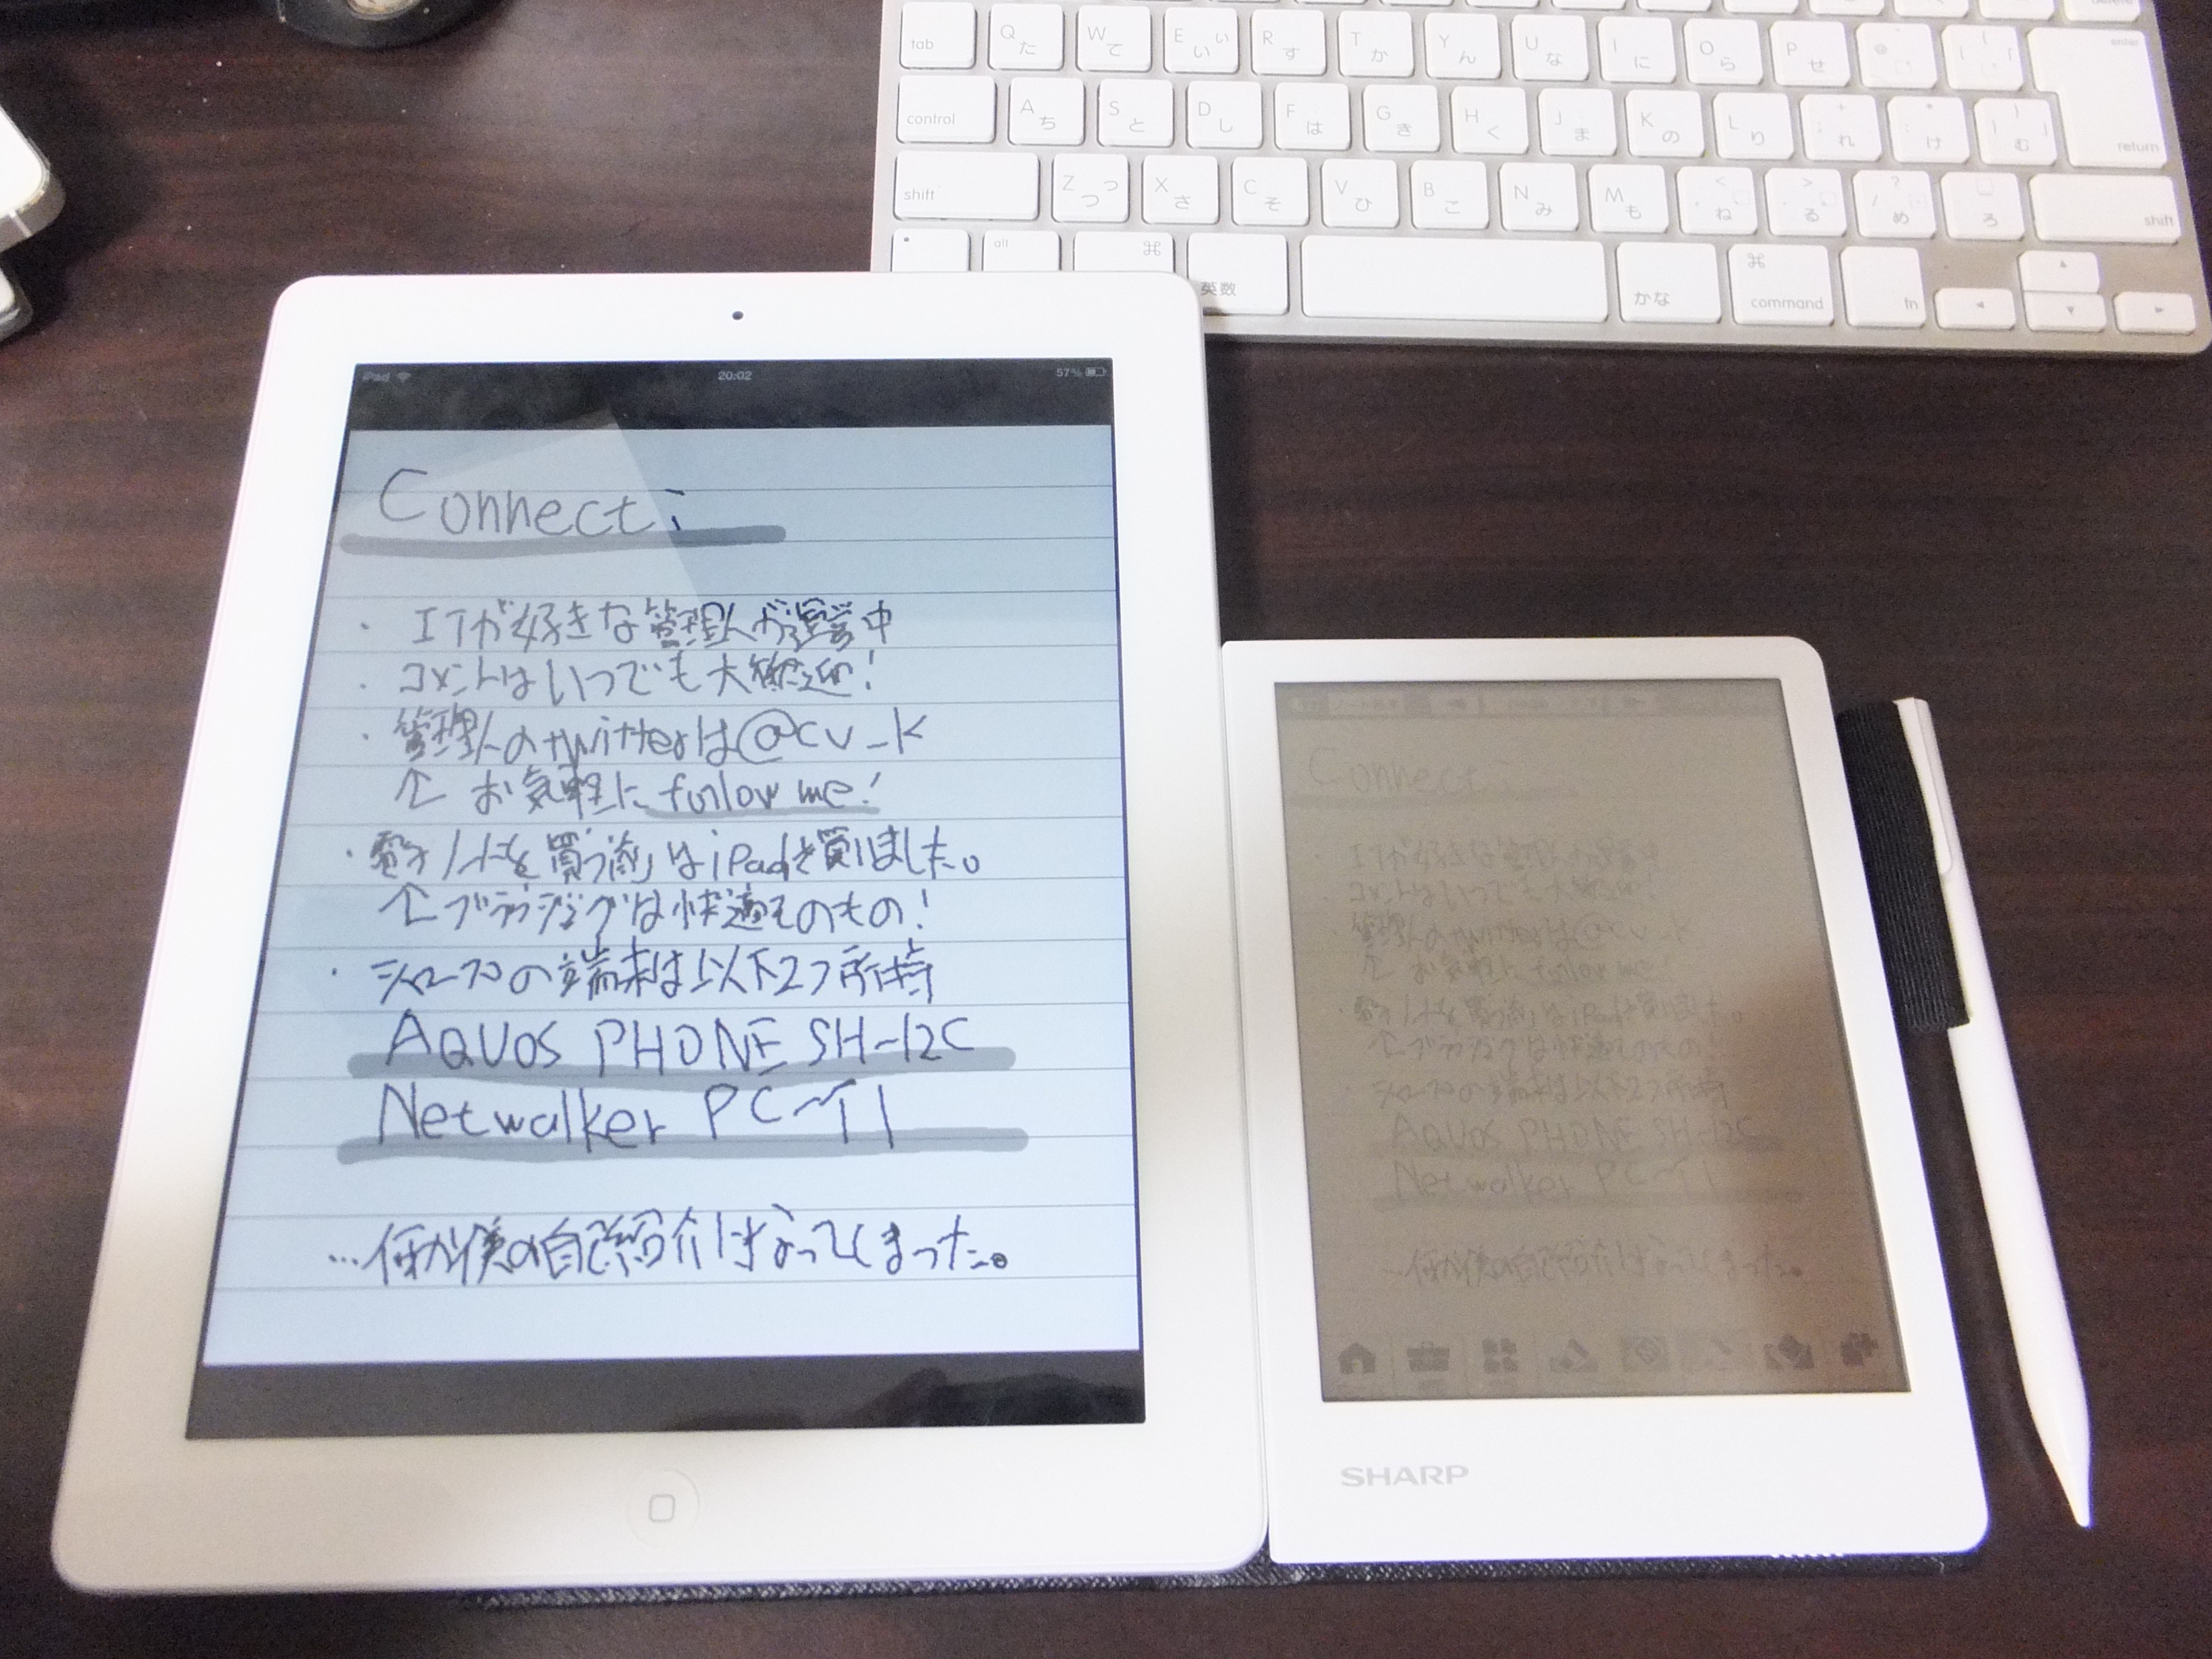 tab Q た W て E い ぃ R す T か Y ん U な I に O ら P せ @ enter
control A ち S と D し F は G き H く J ま K の L り れ け む return
shift Z つ っ X さ C そ V ひ B こ N み M も ね る め ろ shift
alt 英数 かな command fn
iPad 20:02 57%
Connect:
・ITが好きな管理人が運営中
・コメントはいつでも大歓迎!
・管理人のtwitterは@cv_k
↑ お気軽に follow me!
・電子ノートを買う前はiPadを買いました。
↑ブラウジングは快適そのもの!
・シャープの端末は以下2つ所持
AQUOS PHONE SH-12C
Netwalker PC-T1
…何か僕の自己紹介になってしまった。
Connect:
ITが好きな管理人が運営中
・コメントはいつでも大歓迎!
管理人のtwitterは@cv_k
↑ お気軽に follow me!
・電子ノートを買う前はiPadを買いました。
↑ブラウジングは快適そのもの!
・シャープの端末は以下2つ所持
AQUOS PHONE SH-12C
Netwalker PC-T1
…何か僕の自己紹介になってしまった。
SHARP